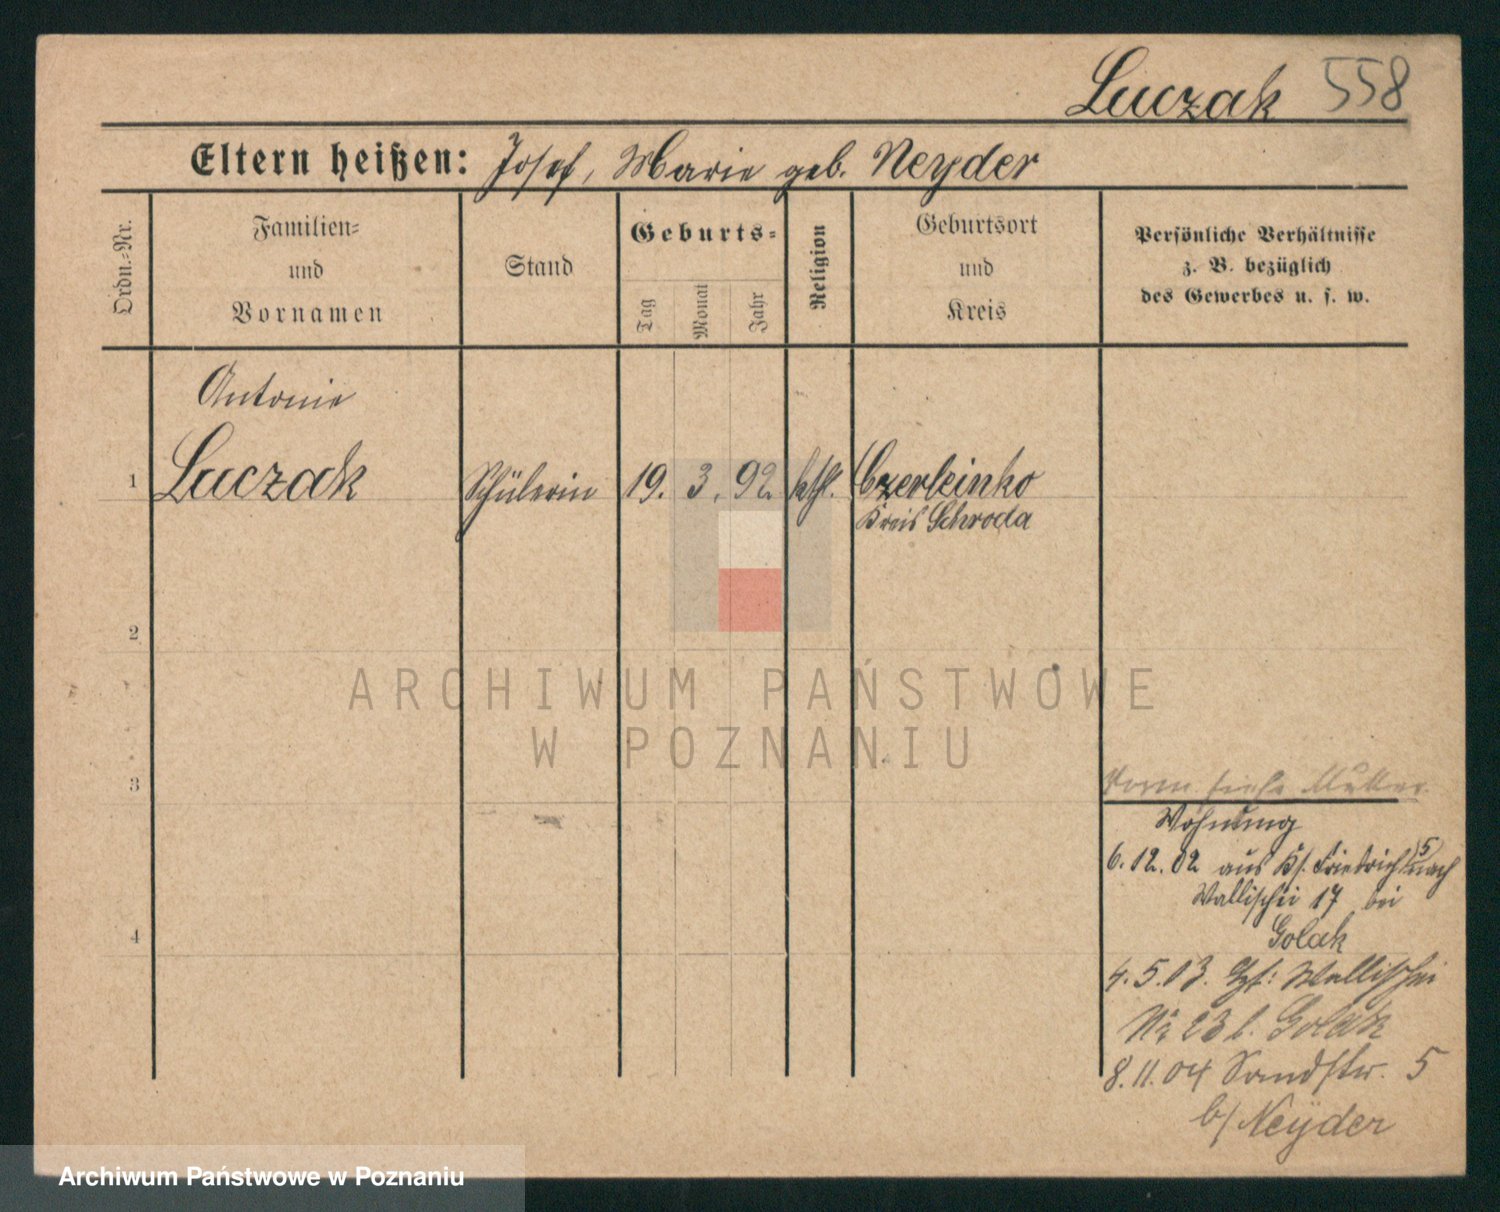 Luczak 558
Eltern heißen: Josef, Marie geb. Neyder
Ordn.-Nr.
Familien-
und
Vornamen
Stand
Geburts-
Tag
Monat
Jahr
Religion
Geburtsort
und
Kreis
Persönliche Verhältnisse
z. B. bezüglich
des Gewerbes u. s. w.
Antonie
1 Luczak Schülerin 19. 3. 92. kath. Czerleinko
Kreis Schroda
2
ARCHIWUM PAŃSTWOWE
W POZNANIU
3
siehe Mutter
Wohnung
6.12.02 aus Friedrich 5 nach
Wallischei 17 bei
Golak
4
4.5.03. Wallischei
No 23 b. Golak
8.11.04 Sandstr. 5
b/ Neÿder
Archiwum Państwowe w Poznaniu